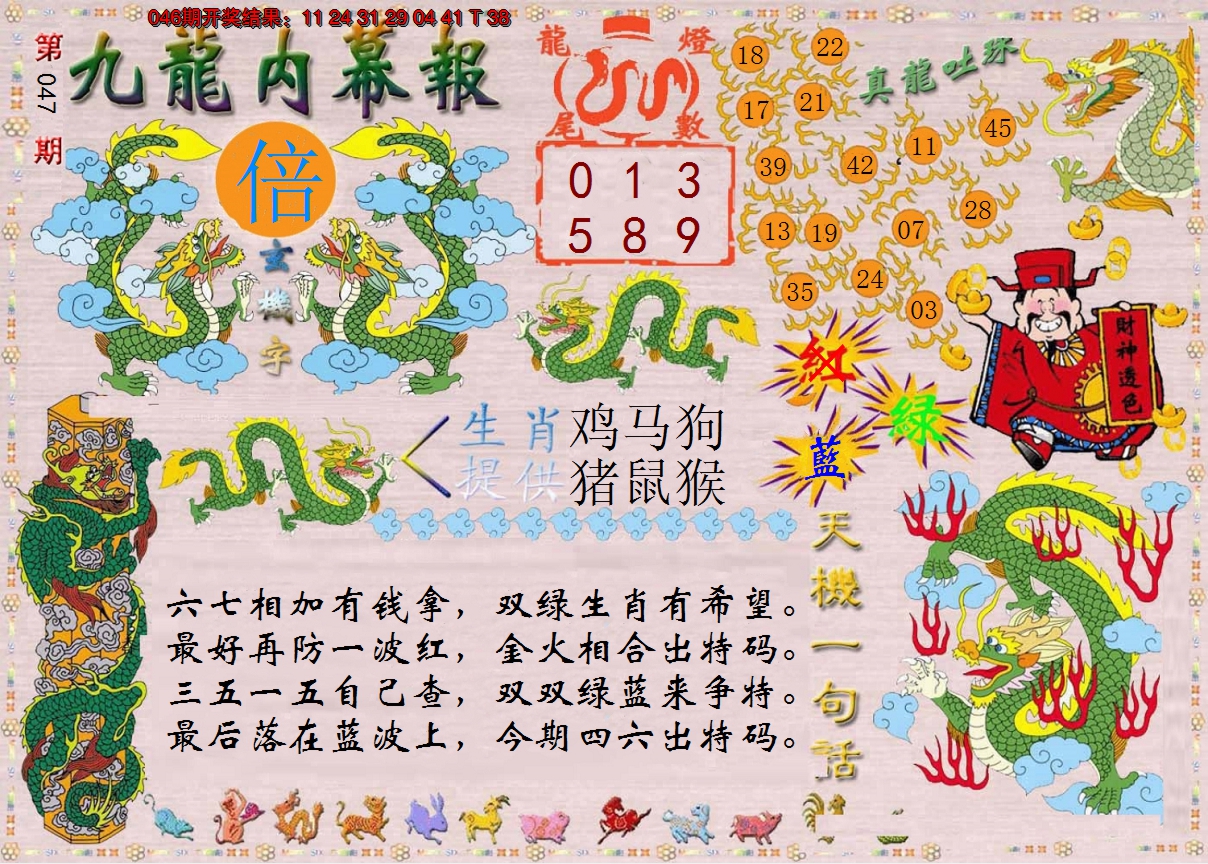 046期开奖结果：11 24 31 29 04 41 T 38
第047期
九龍内幕報
倍
玄機字
龍燈尾數
0 1 3
5 8 9
真龍吐珠
18 22
17 21
11 45
39 42
13 19 07 28
35 24 03
財神透色
紅
綠
藍
生肖 鸡马狗
提供 猪鼠猴
天機一句話
六七相加有钱拿，双绿生肖有希望。
最好再防一波红，金火相合出特码。
三五一五自己查，双双绿蓝来争特。
最后落在蓝波上，今期四六出特码。